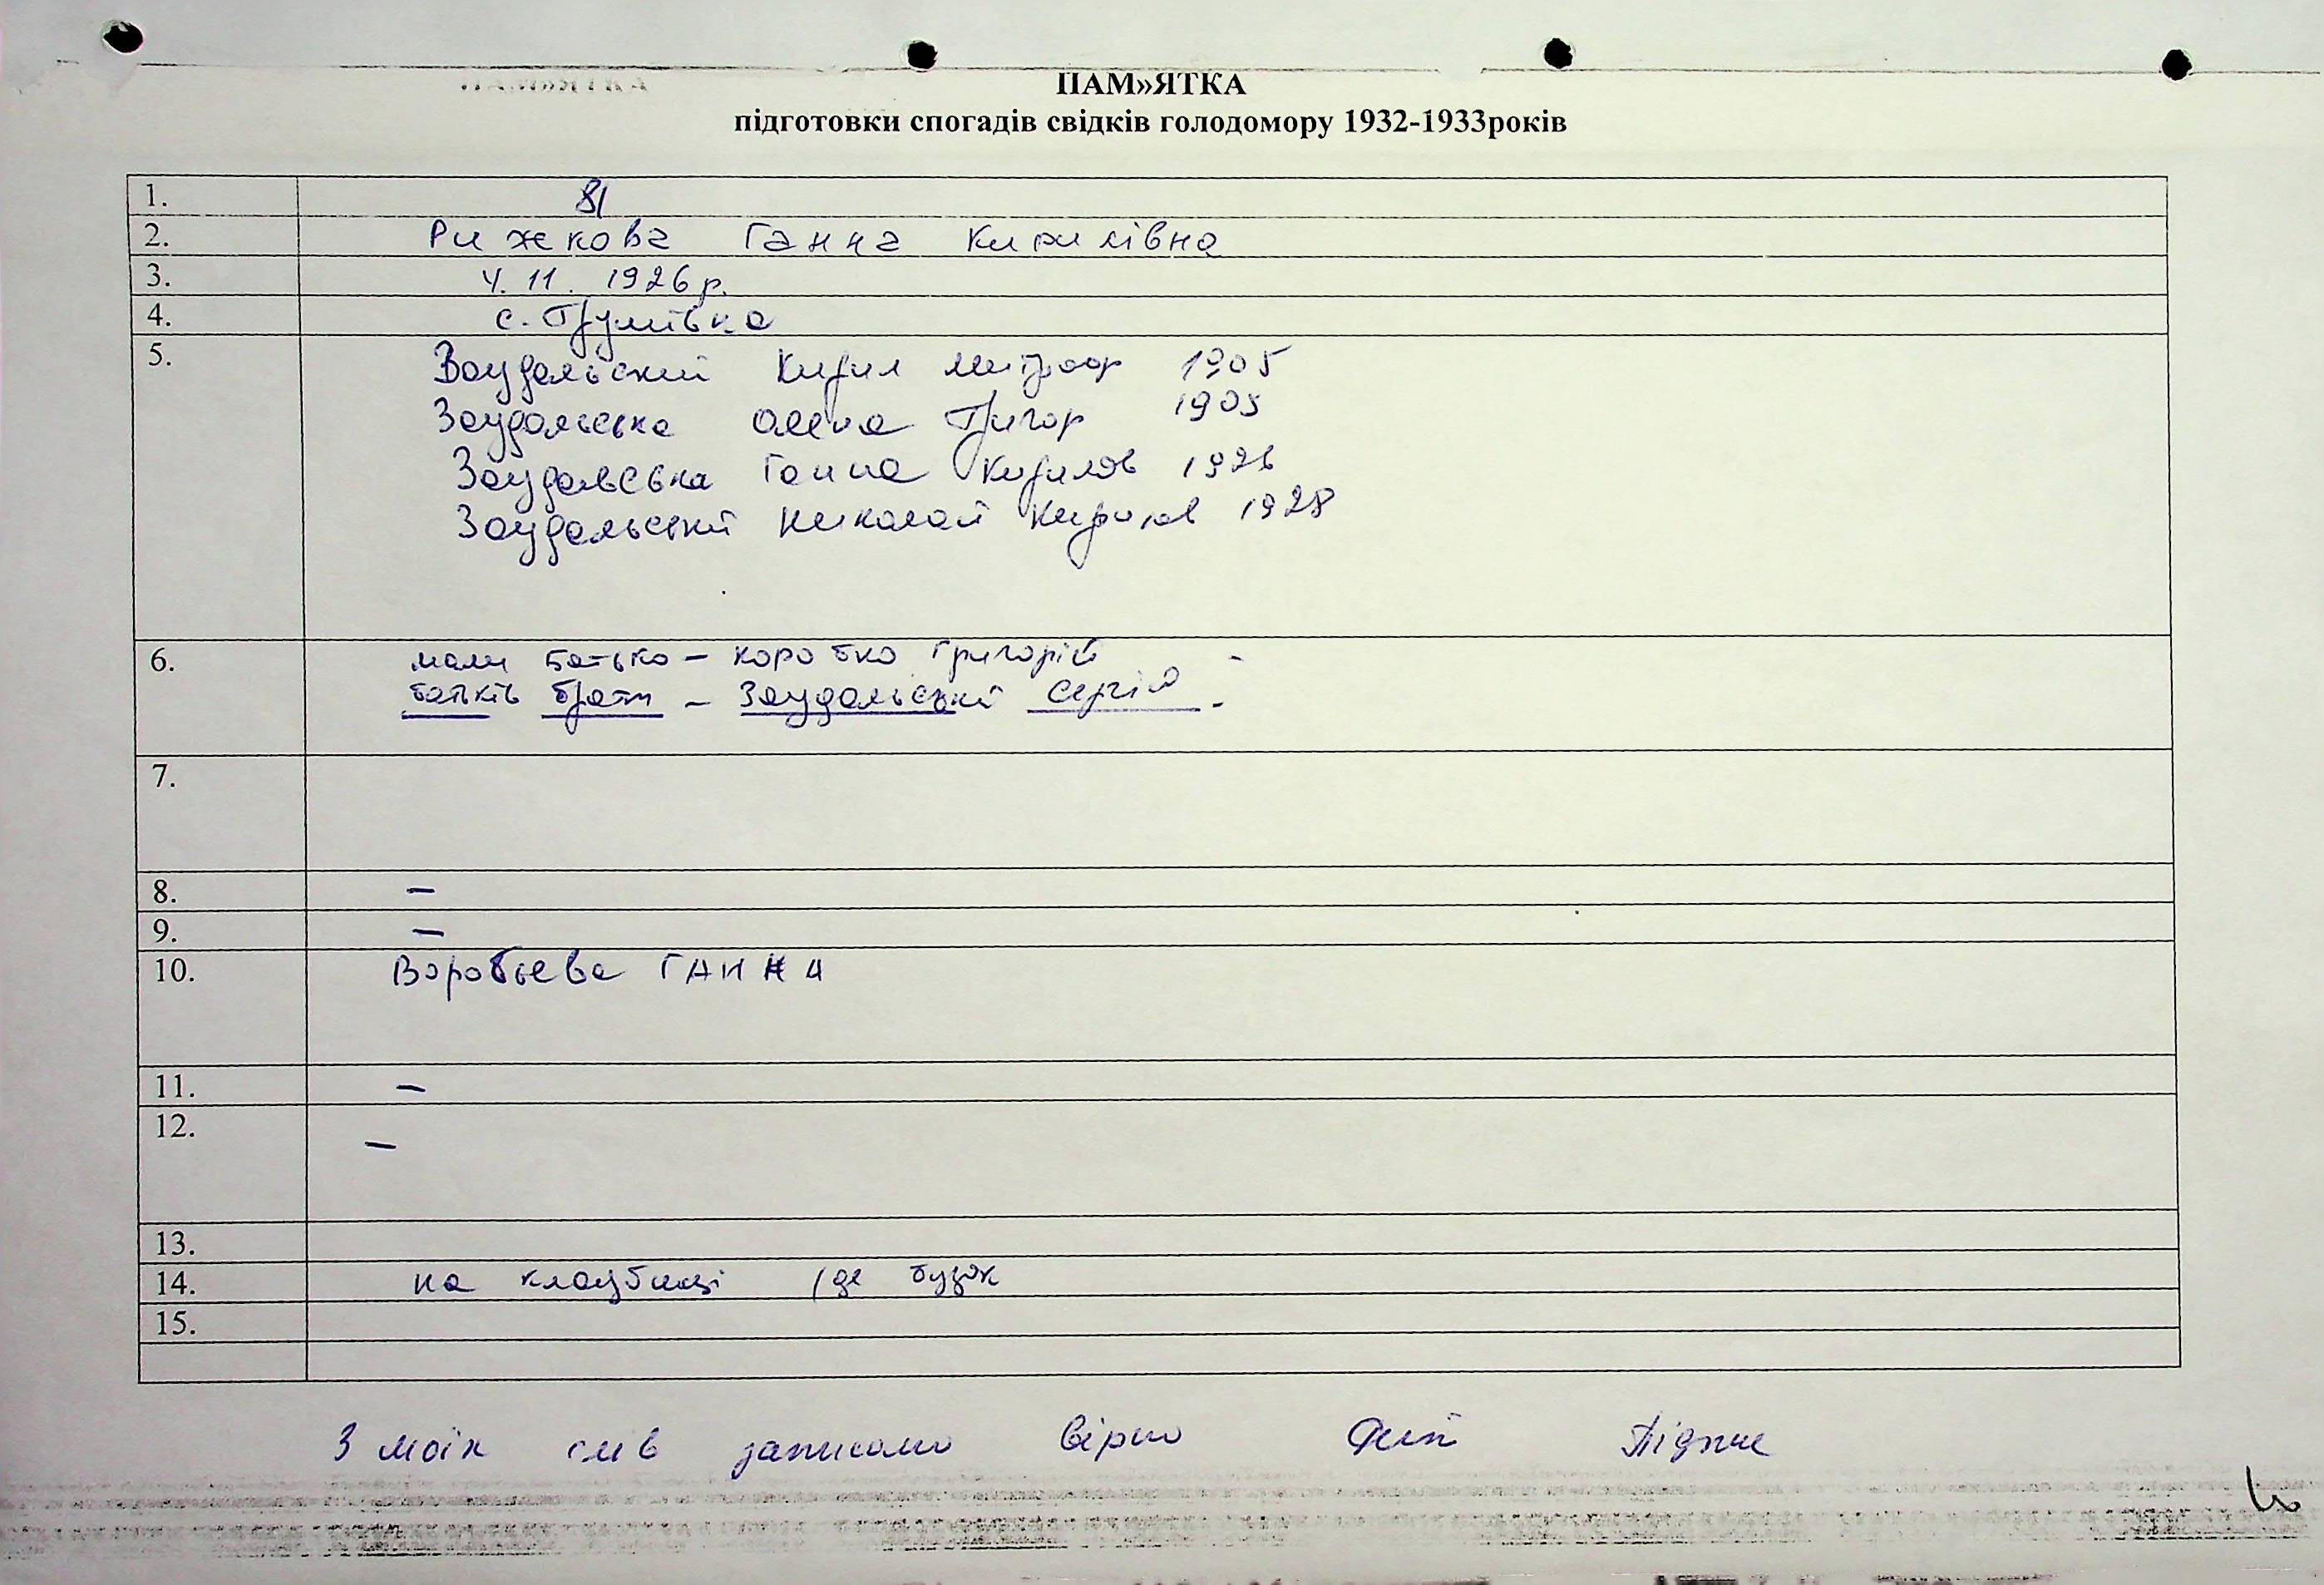 ПАМ»ЯТКА
підготовки спогадів свідків голодомору 1932-1933років
1. 81
2. Рижкова Ганна Кирилівна
3. 4. 11. 1926 р.
4. с.
5. Заудальский Кирил Митроф 1905
Заудальська Олена Григор 1905
Заудальська Ганна Кирилов 1926
Заудальський Николай Кирилов 1928
6. мами батько – Коротко Григорій –
батьків брати – Заудальский Сергій –
7.
8. –
9. –
10. Воробьева ГАННА
11. –
12. –
13.
14. на кладбищі (де
15.
З моїх слів записано вірно Підпис